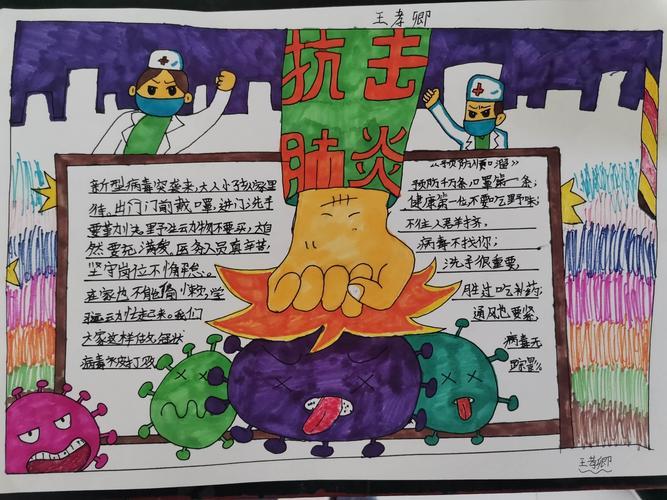 王孝卿
抗击
肺炎
新型病毒突袭来,大人小孩家里
待。出门门前戴口罩,进门洗手
要勤快。野生动物不要买,大自
然要充满爱。医务人员真辛苦,
坚守岗位不惧
在家也不能偷懒,学
习运动快起来。我们
大家这样做,冠状
病毒打败
《预防顺口溜》
预防千万条,口罩第一条;
健康第一位,不要吃野味;
不往人群挤,
病毒不找你;
洗手很重要,
胜过吃补药,
通风也要紧
病毒无
踪影。
王孝卿